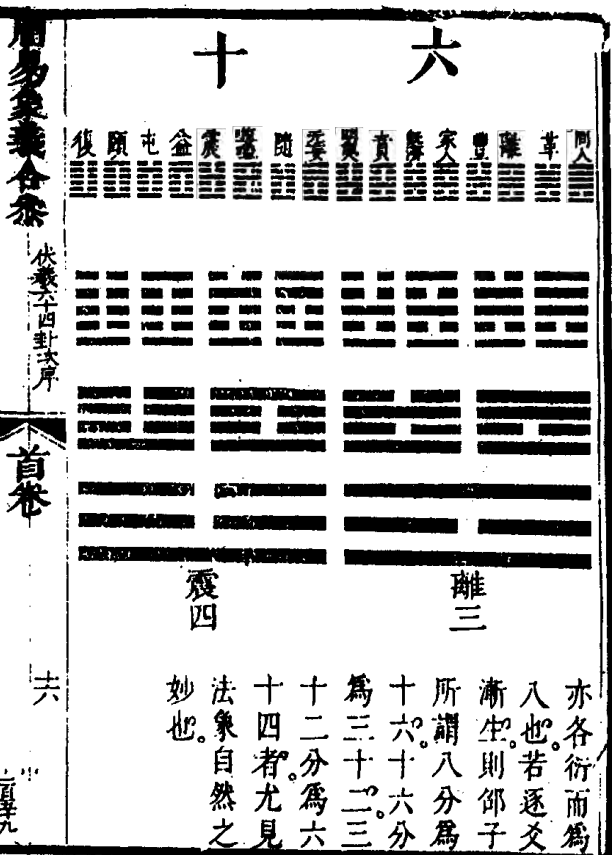 六十
同人
革
離
豐
家人
既濟
賁
明夷
无妄
隨
噬嗑
震
益
屯
頤
復
離三
震四
亦各衍而爲
八也。若逐爻
漸生。則邵子
所謂八分爲
十六。十六分
爲三十二。三
十二分爲六
十四者。尤見
法象自然之
妙也。
周易象義合參
伏羲六十四卦次序
首卷
十六